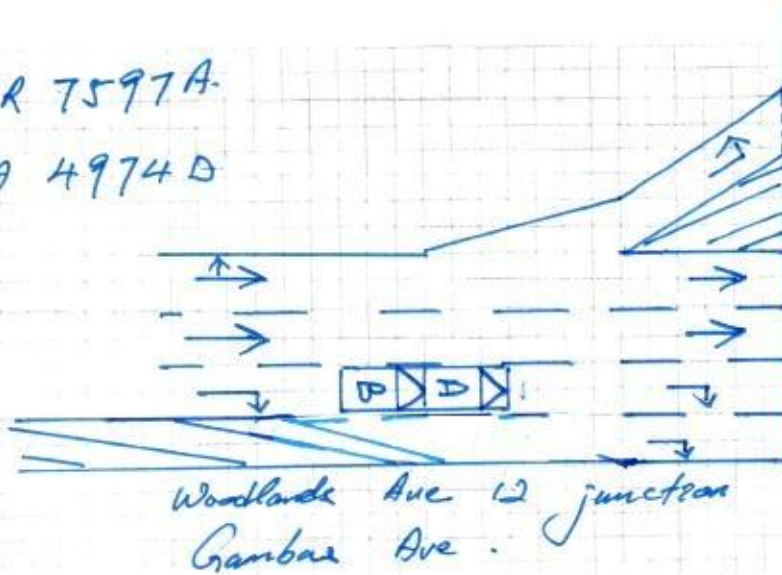 R 7597A.
4974D
B D
Woodlands Ave 12 junction
Gambas Ave.